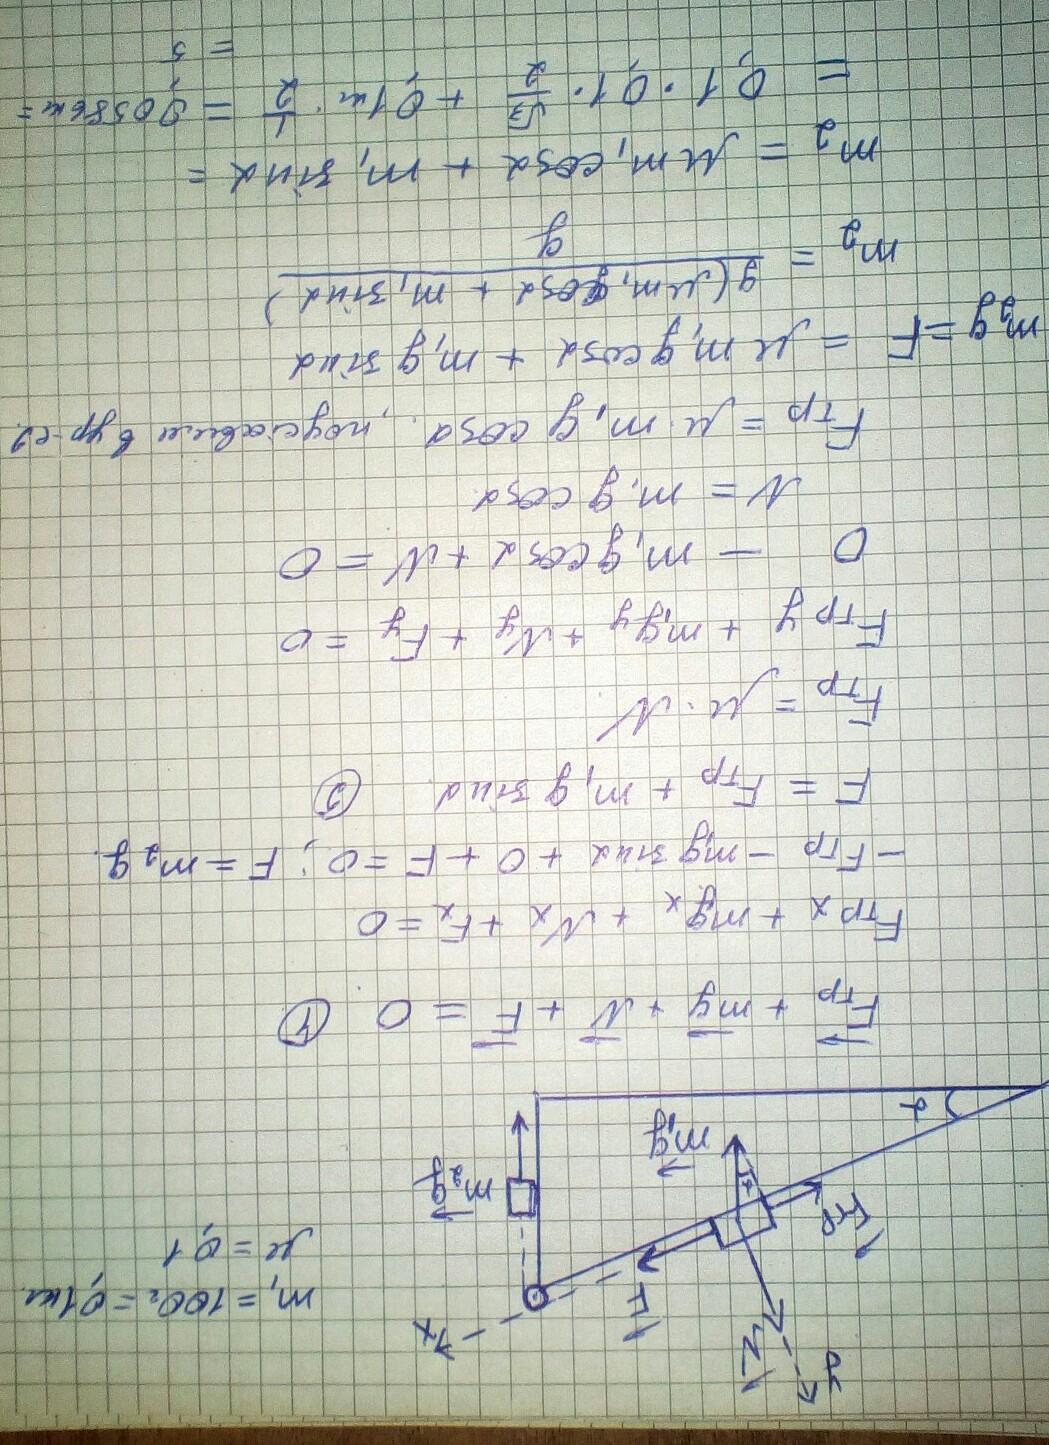 y
N
F
x
m₁ = 100г = 0,1 кг.
μ = 0,1
Fтр
m₁g
m₂g
α
α
Fтр + mg + N + F = 0 ①
Fтр x + mgx + Nx + Fx = 0
-Fтр - m₁g sinα + 0 + F = 0; F = m₂g.
F = Fтр + m₁g sinα. ②
Fтр = μ · N
Fтр y + m₁gy + Ny + Fy = 0
0 - m₁g cosα + N = 0
N = m₁g cosα.
Fтр = μ m₁g cosα., подставим в ур-е 2.
m₂g = F = μ m₁g cosα + m₁g sinα
m₂ = g(μm₁cosα + m₁sinα) / g
m₂ = μ m₁ cosα + m₁ sinα =
= 0,1 · 0,1 · √3/2 + 0,1кг · 1/2 = 0,0586кг =
=